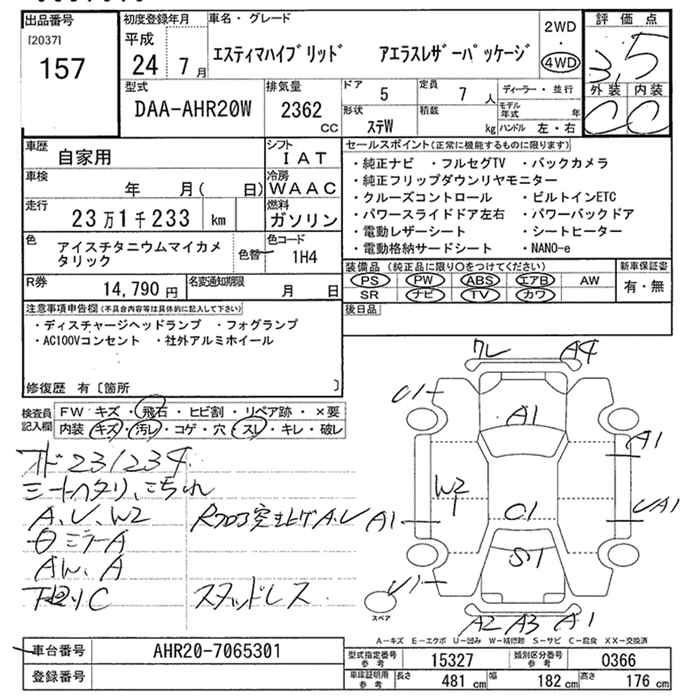 出品番号
[2037]
157
初度登録年月
平成
24 年 7 月
車名・グレード
エスティマハイブリッド アエラスレザーパッケージ
2WD
・
4WD
評価点
3.5
外装 内装
C C
型式
DAA-AHR20W
排気量
2362 cc
ドア 5
定員 7 人
形状 ステW
積載 kg
ディーラー・並行
モデル年式 年
ハンドル 左・右
車歴 自家用
シフト IAT
車検 年 月( 日)
冷房 WAAC
走行 23万1千233 km
燃料 ガソリン
色 アイスチタニウムマイカメタリック
色替
色コード 1H4
R券 14,790 円
名変通知期限 月 日
セールスポイント(正常に機能するものに限ります)
・純正ナビ ・フルセグTV ・バックカメラ
・純正フリップダウンリヤモニター
・クルーズコントロール ・ビルトインETC
・パワースライドドア左右 ・パワーバックドア
・電動レザーシート ・シートヒーター
・電動格納サードシート ・NANO-e
装備品(純正品に限り○をつけてください)
PS PW ABS エアB AW
SR ナビ TV カワ
新車保証書
有・無
後日品
注意事項申告欄(不具合内容等は具体的に記入して下さい)
・ディスチャージヘッドランプ ・フォグランプ
・AC100Vコンセント ・社外アルミホイール
修復歴 有〔箇所 〕
検査員記入欄
FW キズ・飛石・ヒビ割・リペア跡・×要
内装 キズ・汚レ・コゲ・穴・スレ・キレ・破レ
231234
A、U、W2
Rフロア突上げA、U
ミラーA
AW、A
下廻りC スタッドレス
ワレ A4
U1
A1
A1
W2
A1
C1
UA1
S1
U1
A2 A3 A1
スペア
A-キズ E-エクボ U-凹み W-補修跡 S-サビ C-腐食 XX-交換済
車台番号 AHR20-7065301
登録番号
型式指定番号 参考 15327
類別区分番号 参考 0366
車庫証明用 参考 長さ 481 cm 幅 182 cm 高さ 176 cm